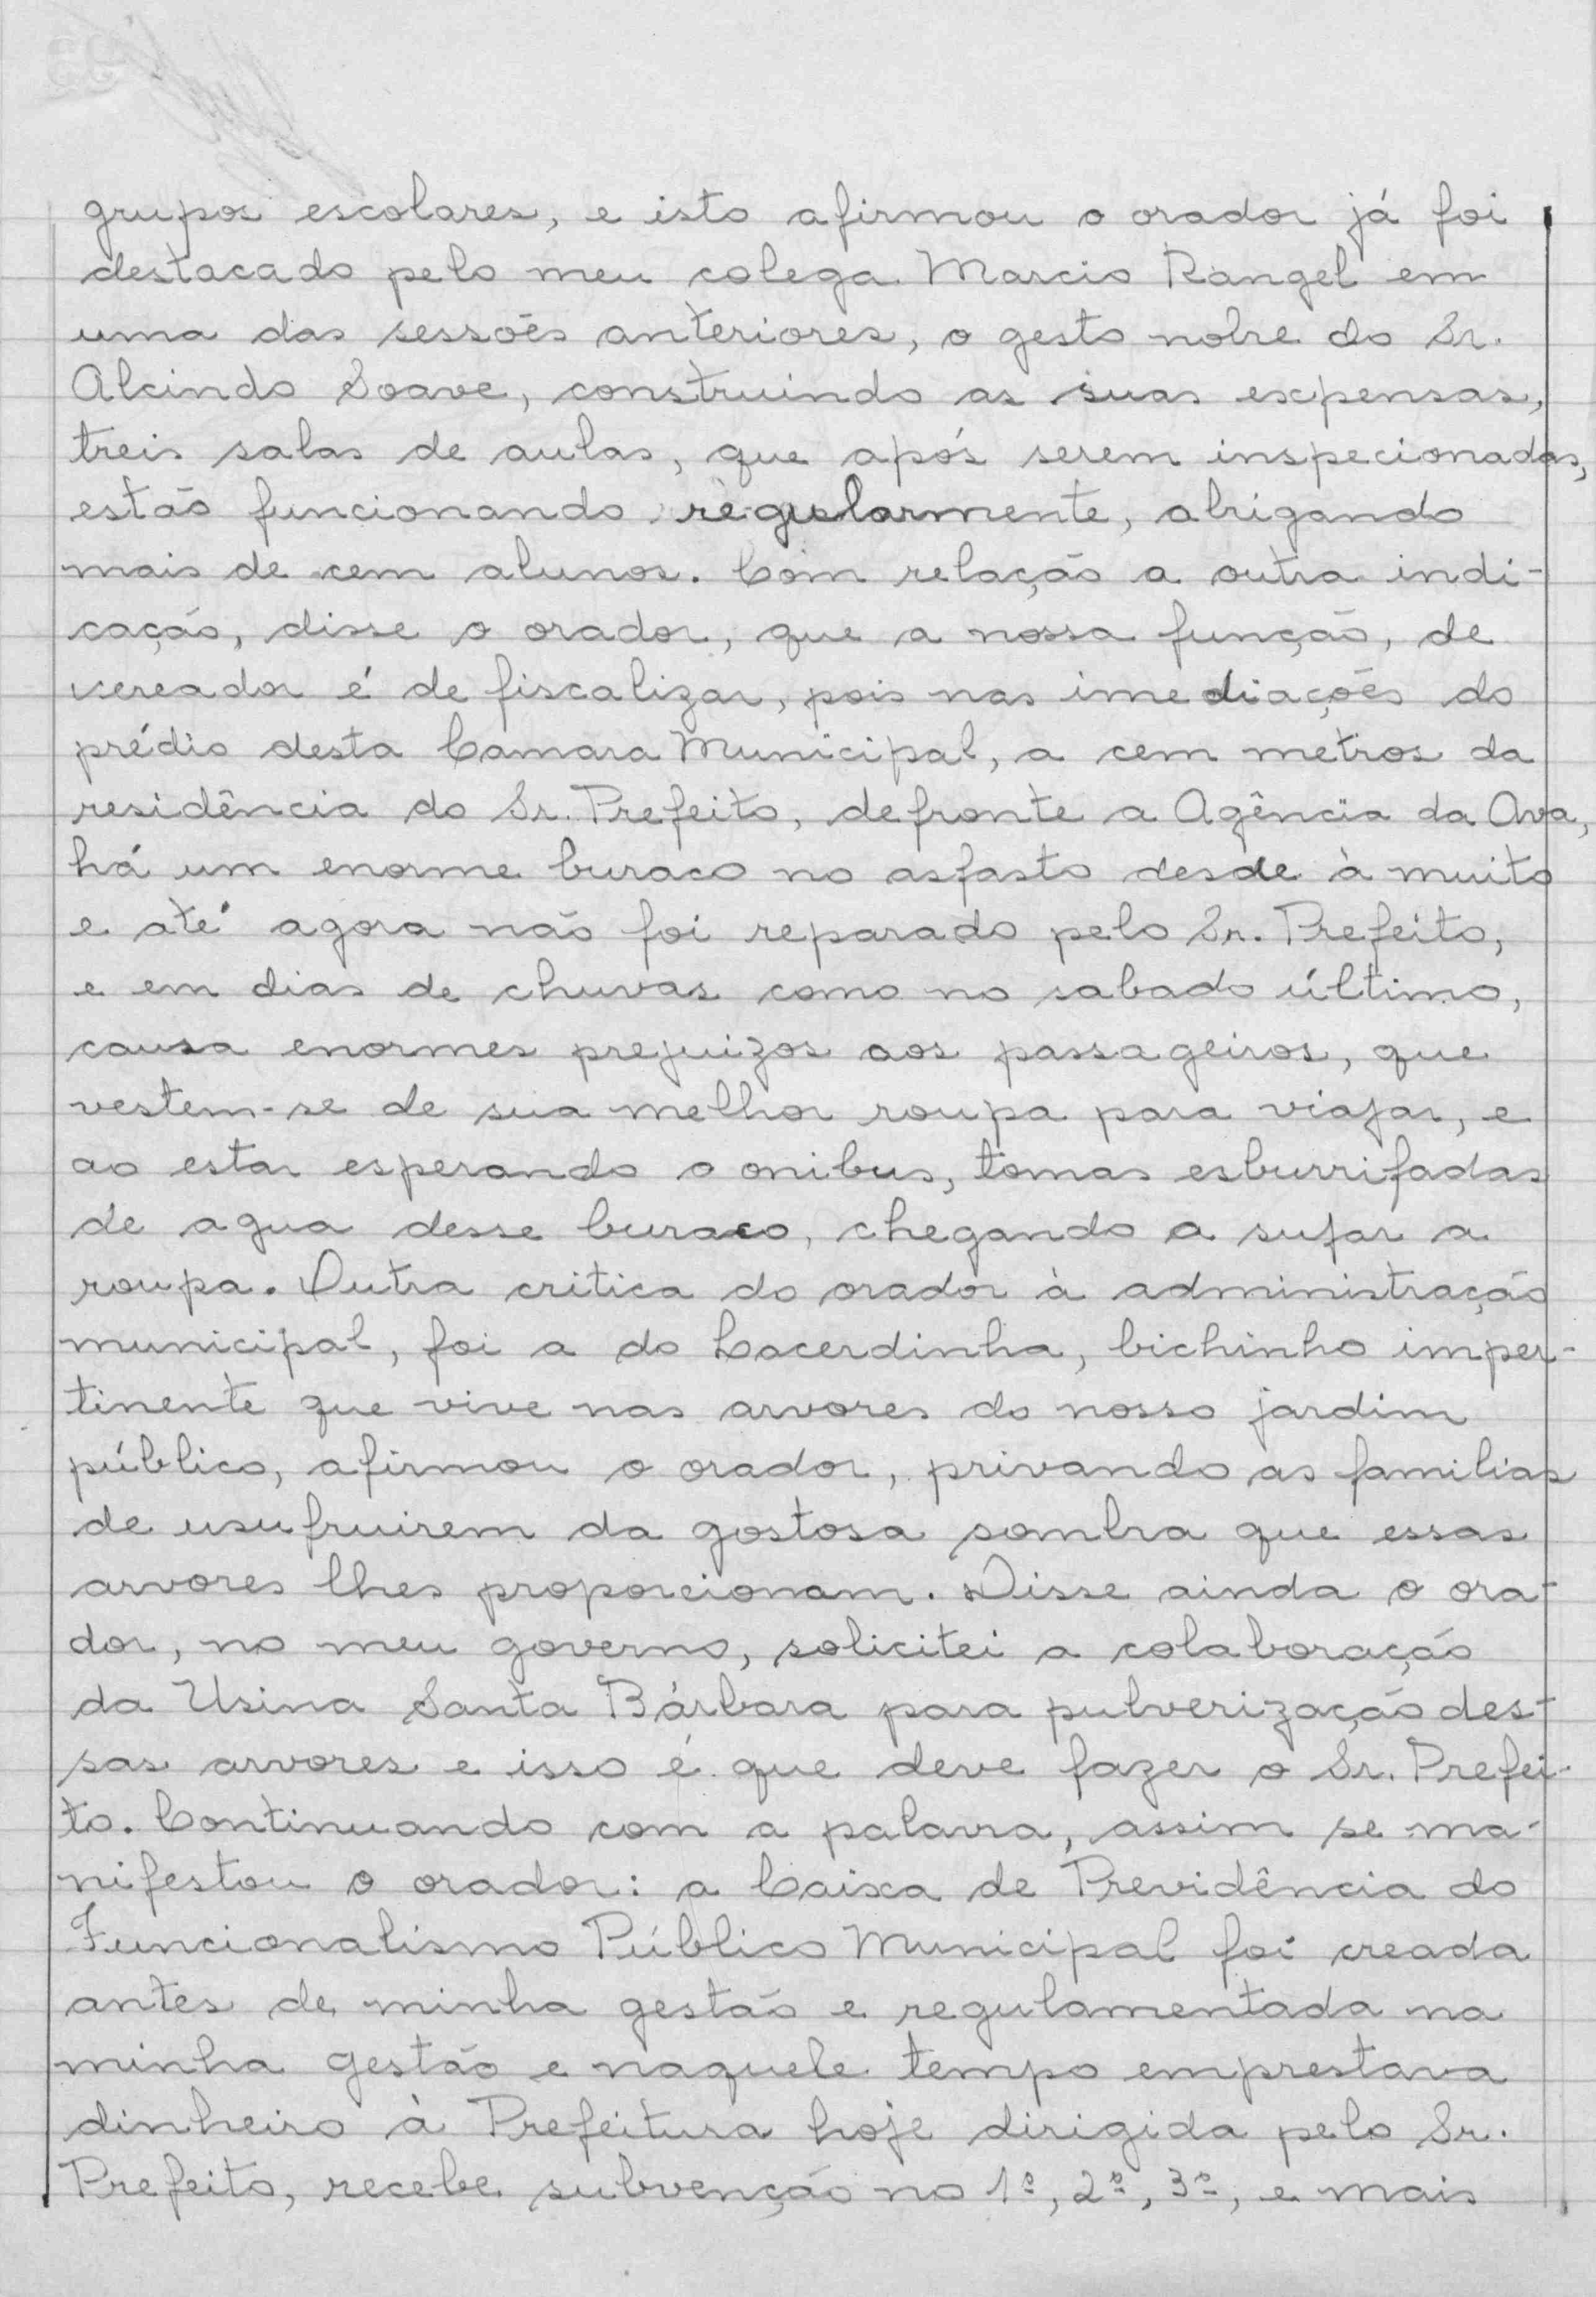 grupos escolares, e isto afirmou o orador já foi
destacado pelo meu colega Marcio Rangel em
uma das sessões anteriores, o gesto nobre do Sr.
Alcindo Soave, construindo as suas expensas,
treis salas de aulas, que após serem inspecionadas,
estão funcionando regularmente, abrigando
mais de cem alunos. Com relação a outra indi-
cação, disse o orador, que a nossa função, de
vereador é de fiscalizar, pois nas imediações do
prédio desta Camara Municipal, a cem metros da
residência do Sr. Prefeito, defronte a Agência da Ava,
há um enorme buraco no asfasto desde à muito
e até agora não foi reparado pelo Sr. Prefeito,
e em dias de chuvas como no sabado último,
causa enormes prejuizos aos passageiros, que
vestem-se de sua melhor roupa para viajar, e
ao estar esperando o onibus, tomas esburrifadas
de agua desse buraco, chegando a sujar a
roupa. Outra critica do orador à administração
municipal, foi a do Lacerdinha, bichinho imper-
tinente que vive nas arvores do nosso jardim
público, afirmou o orador, privando as familias
de usufruirem da gostosa sombra que essas
arvores lhes proporcionam. Disse ainda o ora-
dor, no meu governo, solicitei a colaboração
da Usina Santa Bárbara para pulverização des-
sas arvores e isso é que deve fazer o Sr. Prefei-
to. Continuando com a palavra, assim se ma-
nifestou o orador: a Caixa de Previdência do
Funcionalismo Público Municipal foi creada
antes de minha gestão e regulamentada na
minha gestão e naquele tempo emprestava
dinheiro à Prefeitura hoje dirigida pelo Sr.
Prefeito, recebe subvenção no 1º, 2º, 3º, e mais